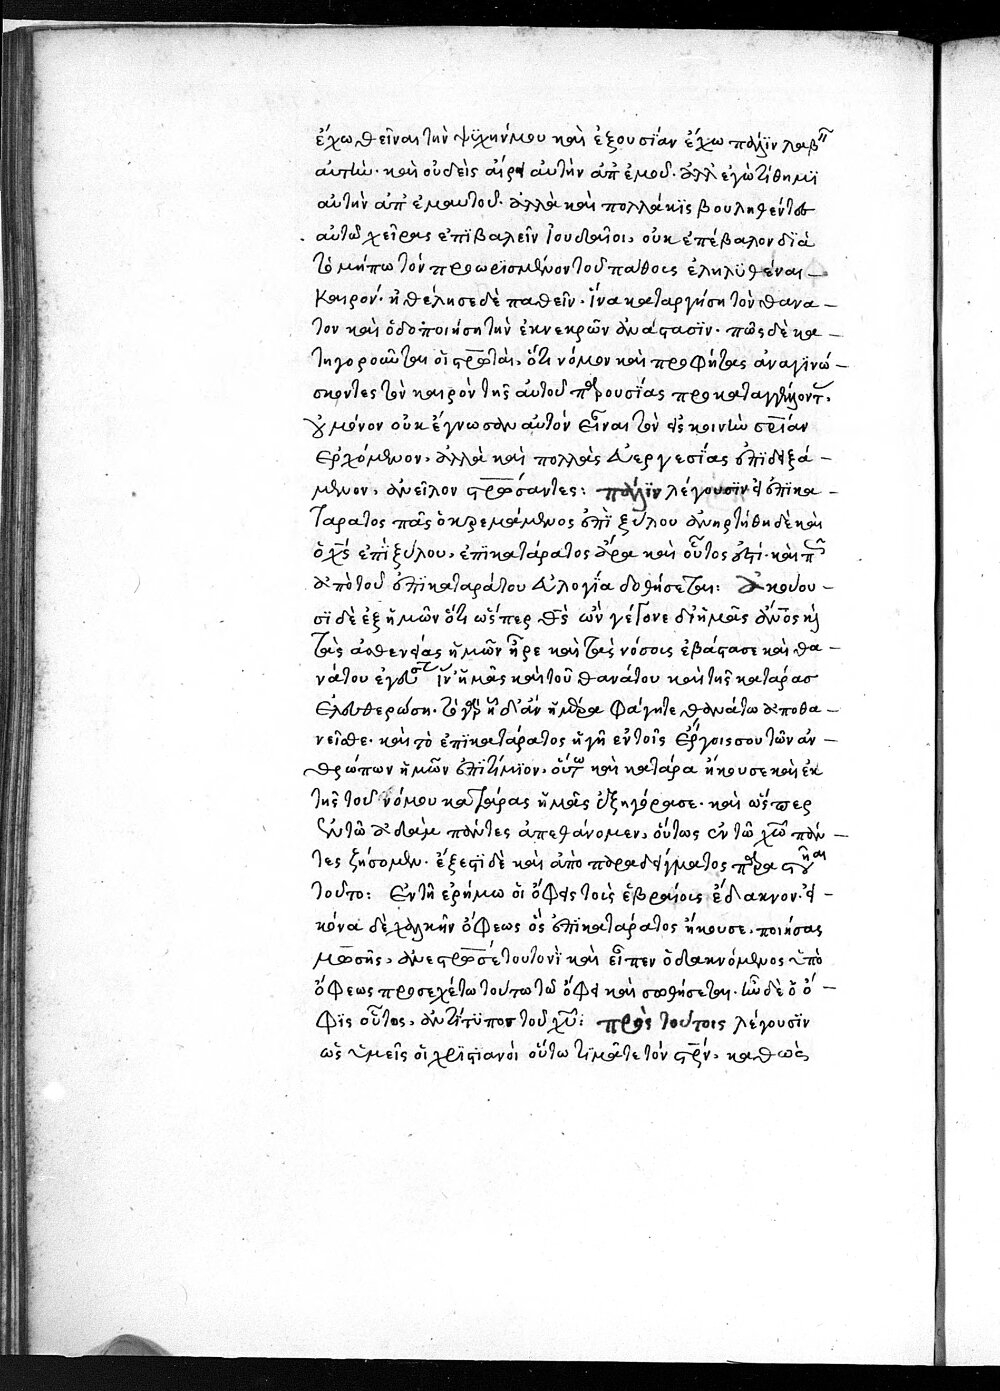 ἔχω θεῖναι τὴν ψϊχήν μου καὶ ἐξουσΐαν ἔχω πάλϊν λαβεῖ
αὐτὴν· καὶ οὐδεὶς αἴρει αὐτὴν ἀπ' ἐμοῦ· ἀλλ' ἐγὼ τίθημϊ
αὐτὴν ἀπ' ἐμαυτοῦ· ἀλλὰ καὶ πολλάκϊς βουληθέντων
αὐτῶ χεῖρας ἐπϊβαλεῖν ἰουδαῖοι, οὐκ ἐπέβαλον δϊὰ
τὸ μήπω τὸν προωρϊσμένον τοῦ πάθους ἐληλϋθέναι –
καιρόν· ἠθέλησε δὲ παθεῖν· ἵνα καταργήση τὸν θάνα –
τον καὶ ὁδοποιήση τὴν ἐκ νεκρῶν ἀνάστασϊν· πῶς δὲ κα –
τηγοροῦνται οἱ σταυρωταὶ, ὅτι νόμον καὶ προφήτας ἀναγϊνώ –
σκοντες τὸν καιρὸν τῆς αὐτοῦ παρουσίας προκαταγγέλοντ,
οὐ μόνον οὐκ ἔγνωσαν αὐτὸν εἶναι τὸν εἰς κοινὴν σρίαν
ἐρχόμενον, ἀλλὰ καὶ πολλὰς εὐεργεσίας ἐπϊδειξά –
μενον, ἀνεῖλον σταυρώσαντες: πάλϊν λέγουσϊν εἰ ἐπϊκα –
τάρατος πᾶς ὁ κρεμάμενος ἐπὶ ξύλου ἀνηρτήθη δὲ καὶ
ὁ χς ἐπὶ ξύλου, ἐπϊκατάρατος ἄρα καὶ οὗτος ἐστί· καὶ πῶς
ἀπὸ τοῦ ἐπϊκαταράτου εὐλογία δοθήσεται: ἀκούου –
σϊ δὲ ἐξ ἡμῶν ὅτι ὥσπερ θς ὢν γέγονε δι' ἡμᾶς ἄνος καὶ
τὰς ἀσθενείας ἡμῶν ἦρε καὶ τὰς νόσους ἐβάστασε καὶ θα –
νάτου ἐγεύσατο ἵν' ἡμᾶς καὶ τοῦ θανάτου καὶ τῆς κατάρας
ἐλευθερώση· τὸ γὰρ ἧ δ' ἂν ἡμέρα φάγητε θανάτω ἀποθα –
νεῖσθε· καὶ τὸ ἐπϊκατάρατος ἡ γῆ ἐν τοῖς ἔργοις σου τῶν ἀν –
θρώπων ἡμῶν ἐπϊτίμϊον, οὕτω καὶ κατάρα ἤκουσε καὶ ἐκ
τῆς τοῦ νόμου κατάρας ἡμᾶς ἐξηγόρασε· καὶ ὥσπερ
ἐν τῶ ἀδὰμ πάντες ἀπεθάνομεν, οὕτως ἐν τῶ χῶ πάν –
τες ζήσομεν· ἔξεστϊ δὲ καὶ ἀπὸ παραδείγματος παραστῆσαι
τοῦτο: ἐν τῆ ἐρήμω οἱ ὄφεις τοὺς ἑβραίους ἔδακνον· εἰ –
κόνα δὲ χαλκὴν ὄφεως ὃς ἐπϊκατάρατος ἤκουσε, ποιήσας
μωσῆς, ἀνεσταύρωσε τουτονῒ καὶ εἶπεν ὁ δακνόμενος ὑπὸ
ὄφεως προσεχέτω τούτω τῶ ὄφει καὶ σωθήσεται· ἦν δὲ ὁ ὄ –
φϊς οὗτος, ἀντίτϋπον τοῦ χυ: πρὸς τούτοις λέγουσϊν
ὡς ὑμεῖς οἱ χρϊστϊανοὶ οὕτω τϊμᾶτε τὸν στρόν, καθὼς